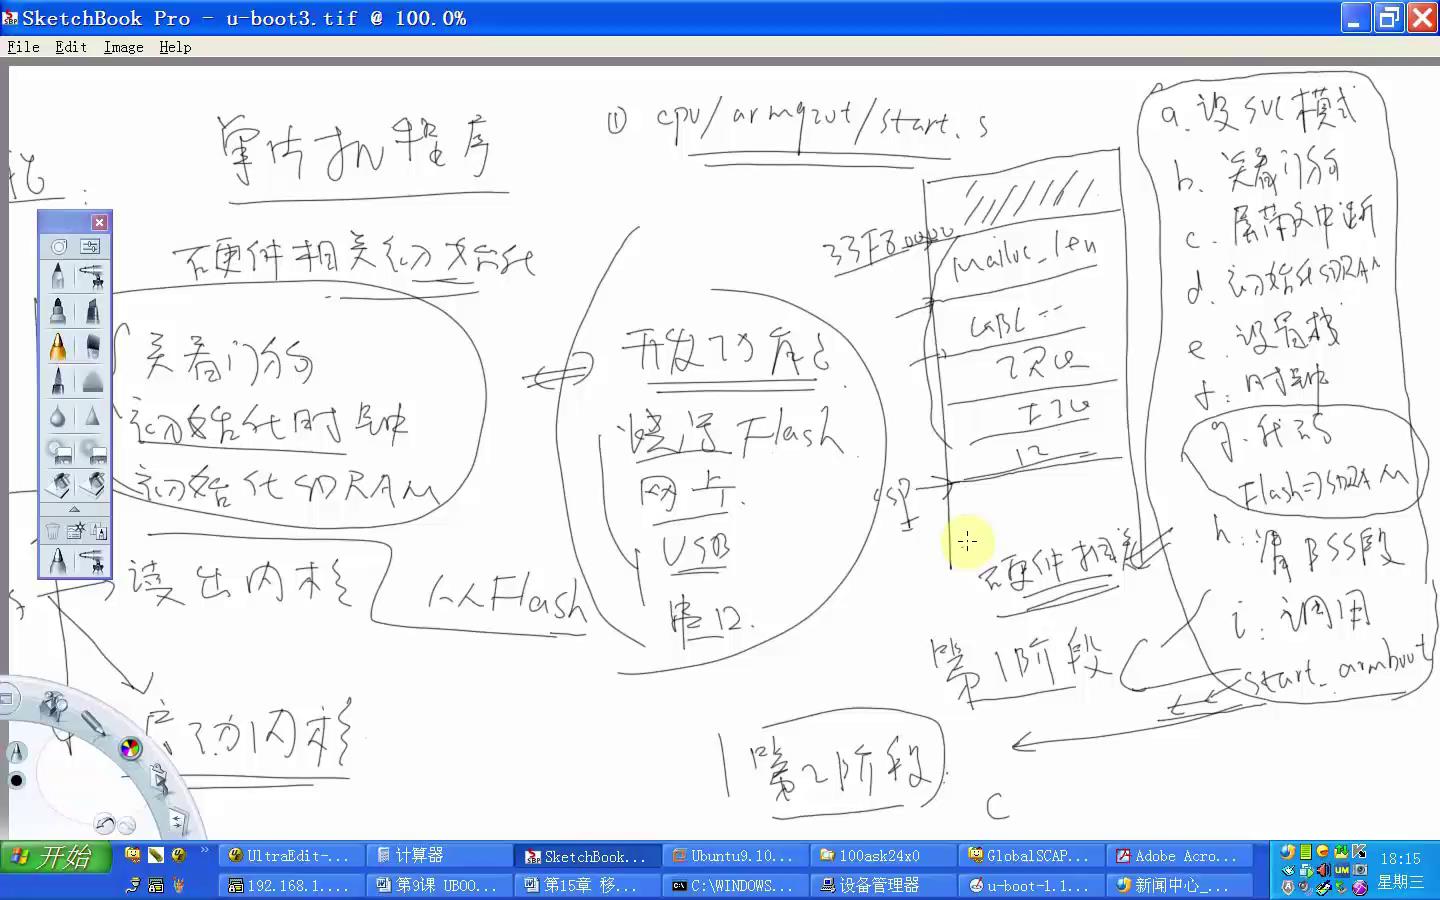 SketchBook Pro - u-boot3.tif @ 100.0%
File Edit Image Help
单片机程序
硬件相关初始化
关看门狗
初始化时钟
初始化SDRAM
读出内核
从Flash
启动内核
开发功能
烧写Flash
网卡
USB
串口
① cpu/arm920t/start.s
33F80000
malloc_len
IRQ
FIQ
12
硬件相关
第1阶段
第2阶段
C
a. 设SVC模式
b. 关看门狗
c. 屏蔽中断
d. 初始化SDRAM
e. 设置栈
f. 时钟
g. 代码
Flash⇒SDRAM
h. 清BSS段
i. 调用
start_armboot
开始
UltraEdit-...
计算器
SketchBook...
Ubuntu9.10...
100ask24x0
GlobalSCAP...
Adobe Acro...
18:15
192.168.1....
第9课 UBOO...
第15章 移...
C:\WINDOWS...
设备管理器
u-boot-1.1...
新闻中心_...
星期三